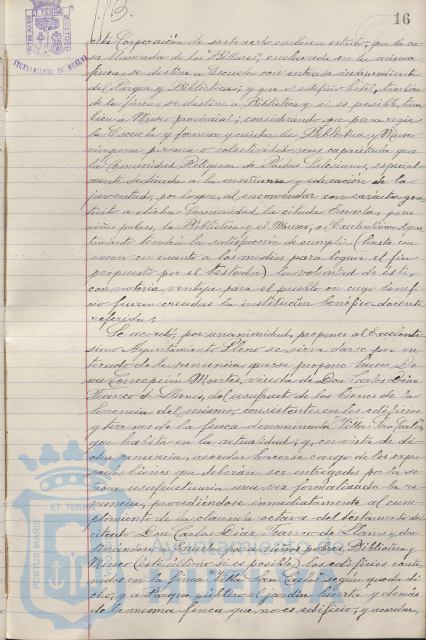 16
AYUNTAMIENTO DE HUELVA
esta Corporación de sostenerlo en buen estado; que la ca-
sa llamada de los "Billares", enclavada en la misma
finca se destine a Escuela con entrada independiente
del Parque y Biblioteca; y que el edificio hotel, también
de la finca, se destine a Biblioteca y si es posible, tam-
bién a Museo provincial; considerando que para regir
la Escuela y formar y cuidar la Biblioteca y Museo
ninguna persona o colectividad mas capacitada que
la Comunidad Religiosa de Padres Salesianos, especial-
mente dedicada a la enseñanza y educación de la
juventud, por lo que, al encomendar con carácter gra-
tuito a dicha Comunidad la citada Escuela, para
niños pobres, la Biblioteca y el Museo, el Excelentísimo Ayun-
tamiento tendrá la satisfacción de cumplir (hasta
en cuanto a los medios para lograr el fin
propuesto por el testador) la voluntad de éste,
con notoria ventaja para el pueblo en cuyo benefi-
cio fueron creadas la institución benéfico docente
referida;
Se acordó, por unanimidad, proponer al Excelentí-
simo Ayuntamiento Pleno se sirva darse por en-
terado de la renuncia que se propone hacer Do-
ña Concepción Montes, viuda de Don Carlos Diaz
Franco de Llanos, del usufructo de los bienes de la
herencia del mismo, consistentes en los edificios
y terrenos de la finca denominada "Villa San Carlos",
que habita en la actualidad; y, en vista de di-
cha renuncia, acordar hacerse cargo de los expre-
sados bienes que deberán ser entregados por la se-
ñora usufructuaria una vez formalizada la re-
nuncia, procediéndose inmediatamente al cum-
plimiento de la clausula octava del testamento del
citado Don Carlos Diaz Franco de Llanos y des-
tinando a Escuela para niños pobres, Biblioteca y
Museo (este último si es posible) los edificios conte-
nidos en la finca "Villa San Carlos" según queda di-
cho; y a Parque público el jardín, huerta y demás
de la misma finca que no es edificio; y acordar,
PORTUS MARIS ET TERRE
Ayuntamiento de
HUELVA